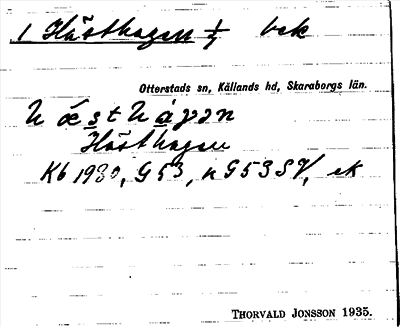 1 Hästhagen 1/1 bek
Otterstads sn, Källands hd, Skaraborgs län.
Hästhagen
Kb 1930, G 53, n G 53 SV, ek
THORVALD JONSSON 1935.